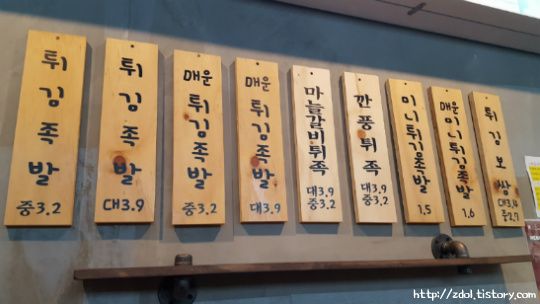 튀김족발
중3.2
튀김족발
대3.9
매운
튀김족발
중3.2
매운
튀김족발
대3.9
마늘갈비튀족
대3.9
중3.2
깐풍튀족
대3.9
중3.2
미니튀김족발
1.5
매운미니튀김족발
1.6
튀김보쌈
대3.4
중2.7
http://zdol.tistory.com